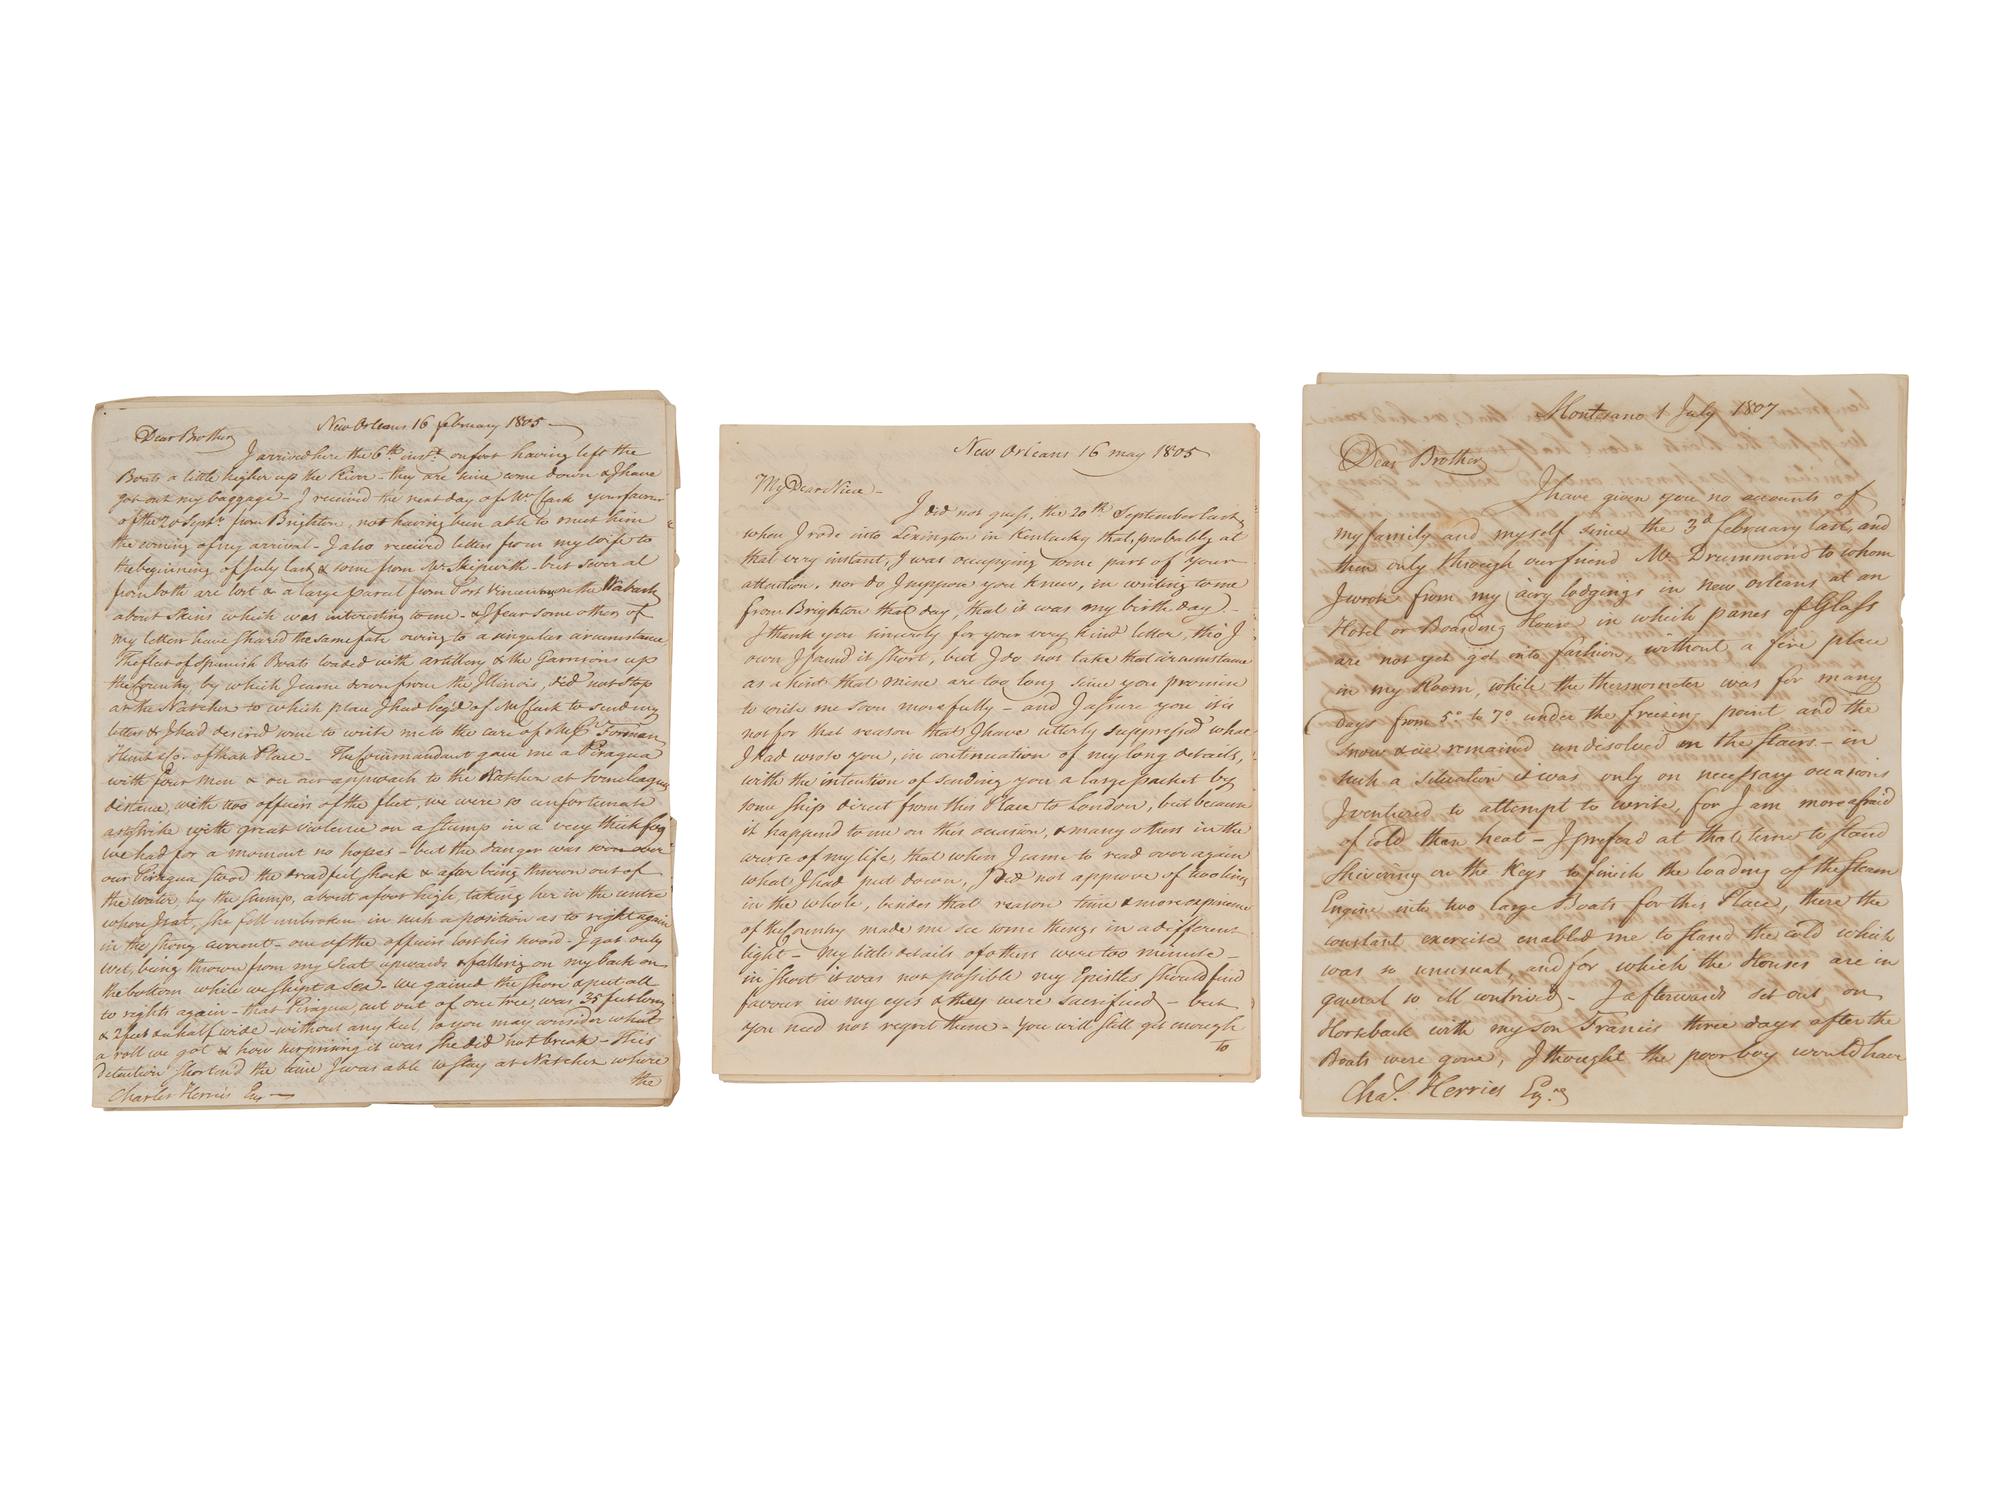 New Orleans 16 February 1805
Dear Brother
I arrived here the 6th inst. on foot having left the
Boats a little higher up the River - they are since come down & I have
got out my baggage - I received the next day of Mr Clark your favor
of the 20 Septr. from Brighton, not having been able to meet him
the evening of my arrival - I also received letters from my wife to
the beginning of July last & some from Mr Skipwith - but several
from both are lost & a large parcel from Post Vincennes on the Wabash
about Skins which was interesting to me - & I fear some others of
my letters have shared the same fate owing to a singular circumstance,
The fleet of Spanish Boats loaded with artillery & the Garrisons up
the Country, by which I came down from the Illinois, did not stop
at the Natchez to which place I had beg'd of Mr Clark to send my
letters & I had desired some to write me to the care of Mess. Forman
Hunt & Co. of that Place - The Commandant gave me a Piragua
with four Men & on our approach to the Natchez at some leagues
distance, with two officers of the fleet, we were so unfortunate
as to strike with great violence on a stump in a very thick fog
we had for a moment no hopes - but the danger was soon over
our Piragua stood the dreadful shock & after being thrown out of
the water, by the stump, about a foot high, taking her in the centre
where I sat, she fell unbroken in such a position as to right again
in the strong current - one of the officers lost his sword - I got only
wet, being thrown from my Seat upwards & falling on my back on
the bottom while we shipt a sea - we gained the Shore & put all
to rights again - that Piragua, cut out of one tree, was 35 feet long
& 2 feet & a half wide - without any keel, so you may consider what
a roll we got & how surprising it was she did not break - This
Detention shortend the time I was able to stay at Natchez where
the
Charles Herries Esq
New Orleans 16 may 1805
My Dear Niece -
I did not guess, the 20th September last,
when I rode into Lexington in Kentucky that, probably at
that very instant, I was occupying some part of your
attention, nor do I suppose you knew, in writing to me
from Brighton that day, that it was my birth day) -
I thank you sincerely for your very kind letter, tho' I
own I found it short, but I do not take that circumstance
as a hint that mine are too long since you promise
to write me soon more fully - and I assure you it is
not for that reason that I have utterly suppressed what
I had wrote you, in continuation of my long details,
with the intention of sending you a large packet by
some ship direct from this Place to London, but because
it happend to me on this occasion, & many others in the
course of my life, that when I came to read over again
what I had put down, I did not approve of
in the whole, besides that reason time & more experience
of the Country made me see some things in a different
light - My little details of others were too minute -
in short it was not possible my Epistles should find
favour in my eyes & they were sacrificed - but
you need not regret them - you will still get enough
to
Montesano 1 July 1807
Dear Brother
I have given you no accounts of
my family and myself since the 3d february last, and
then only through our friend Mr. Drummond to whom
I wrote from my airy lodgings in new orleans at an
Hotel or Boarding House in which panes of Glass
are not yet got into fashion, without a fire place
in my Room, while the thermometer was for many
days from 5° to 7° under the freezing point and the
snow & ice remained undissolved on the stairs - in
such a situation it was only on necessary occasions
I ventured to attempt to write, for I am more afraid
of cold than heat - I prefered at that time to stand
shivering on the Keys to finish the loading of the steam
Engine into two large Boats for this Place, there the
constant exercise enabled me to stand the cold which
was so unusual, and for which the Houses are in
general so ill contrived - I afterwards set out on
Horseback with my son Francis three days after the
Boats were gone, I thought the poor boy would have
Chas. Herries Esqre